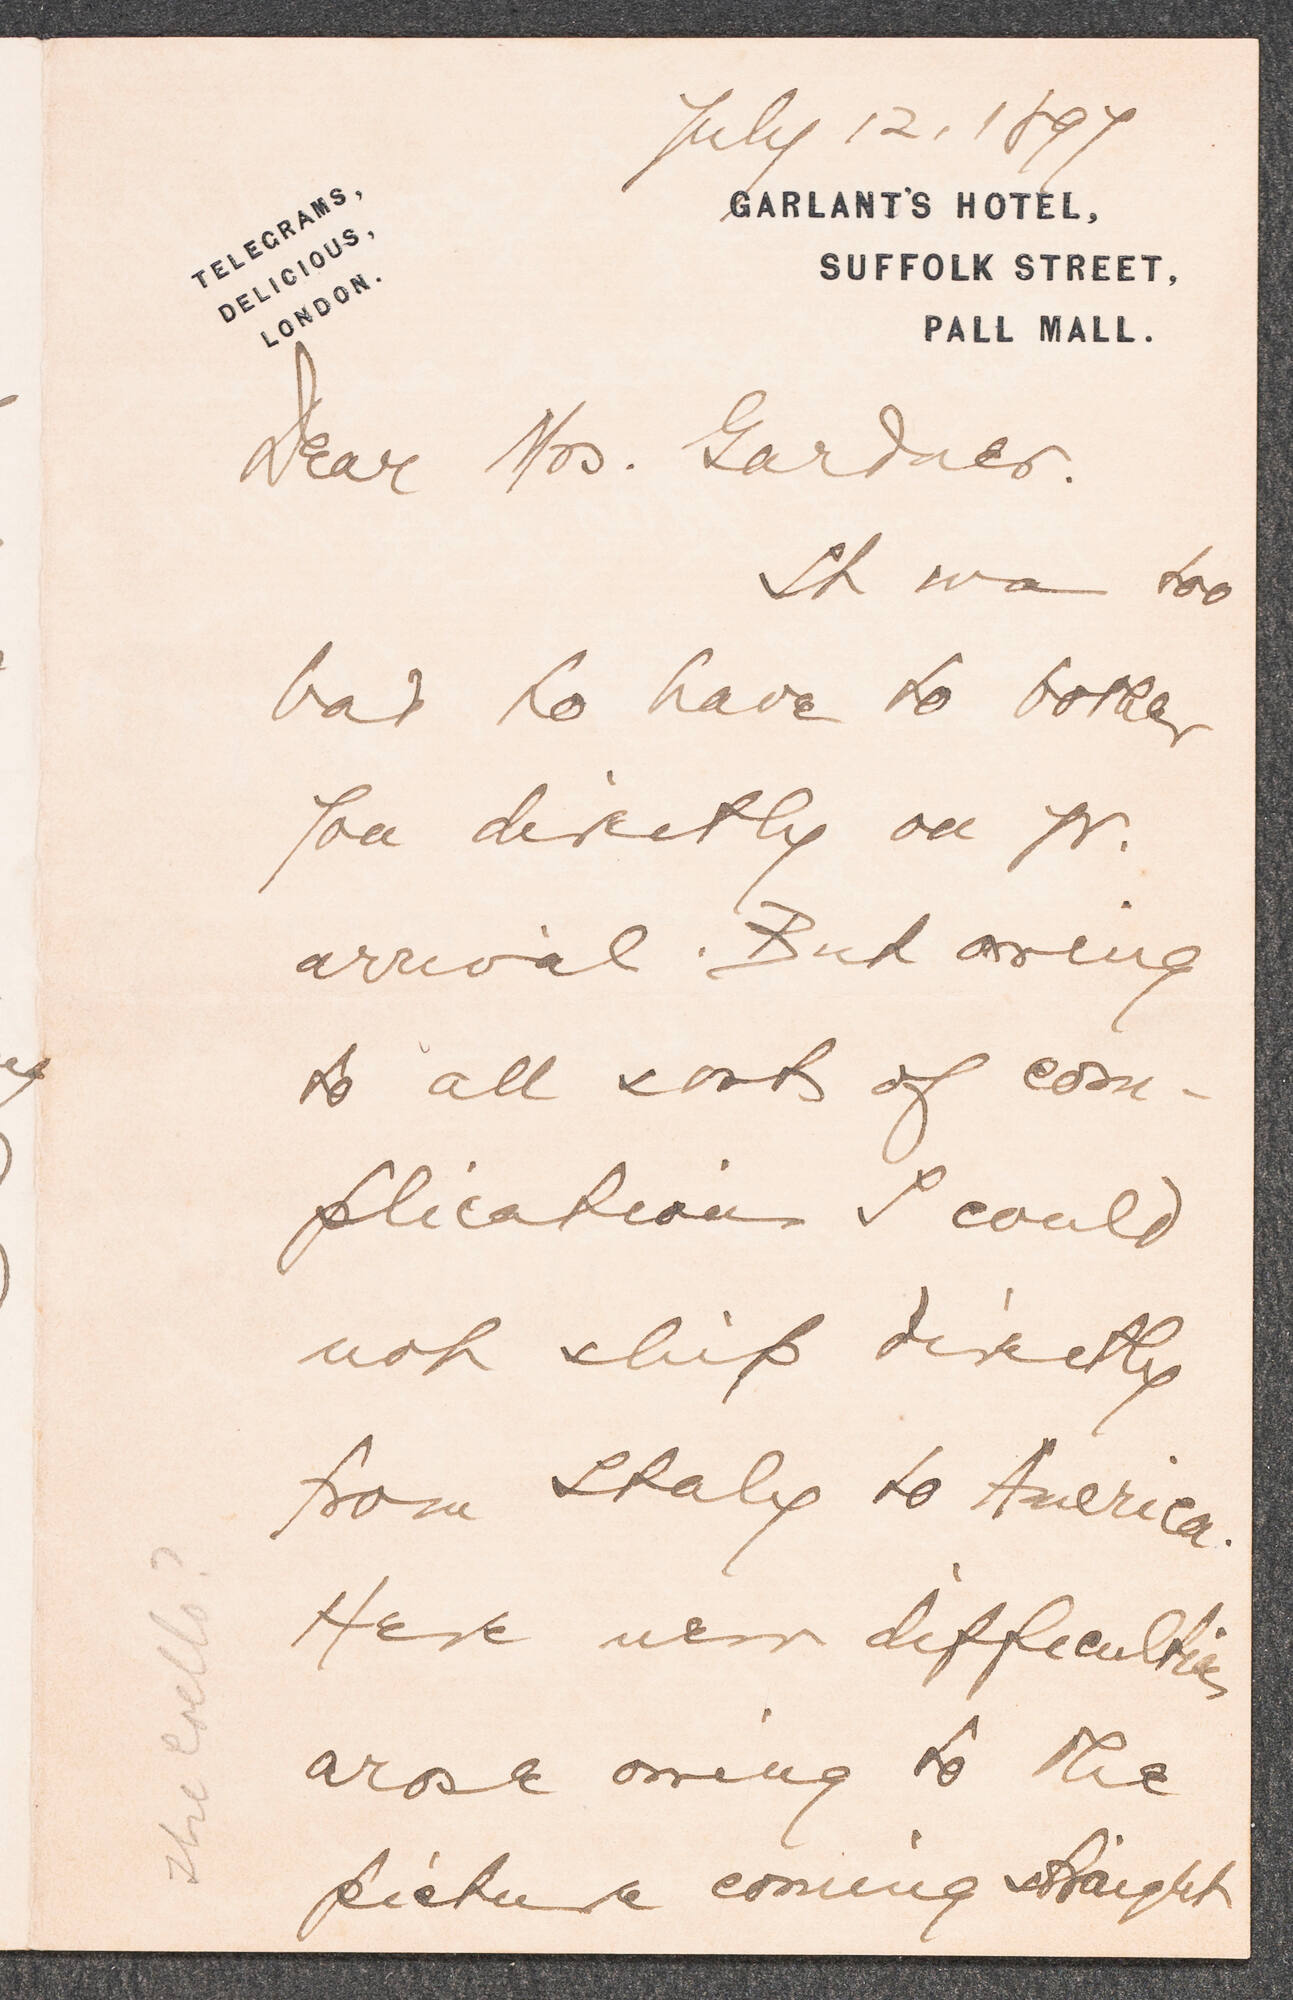 July 12, 1897
TELEGRAMS,
DELICIOUS,
LONDON.
GARLANT'S HOTEL,
SUFFOLK STREET,
PALL MALL.
Dear Mrs. Gardner.
It was too
bad to have to bother
you directly on yr.
arrival. But owing
to all sorts of com-
plications I could
not ship directly
from Italy to America.
Here new difficulties
arose owing to the
picture coming straight
The Coello?